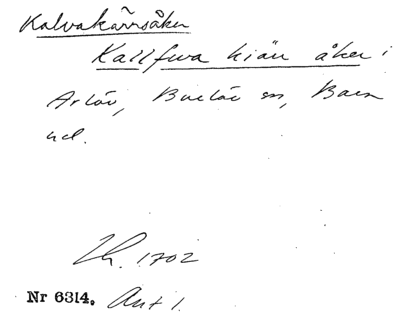 Kalvakärrsåker
Kallfwa kiän åker i
Arlöv, Burlöv sn, Bara
hd.
Lh. 1702
Nr 6314. Avt 1.